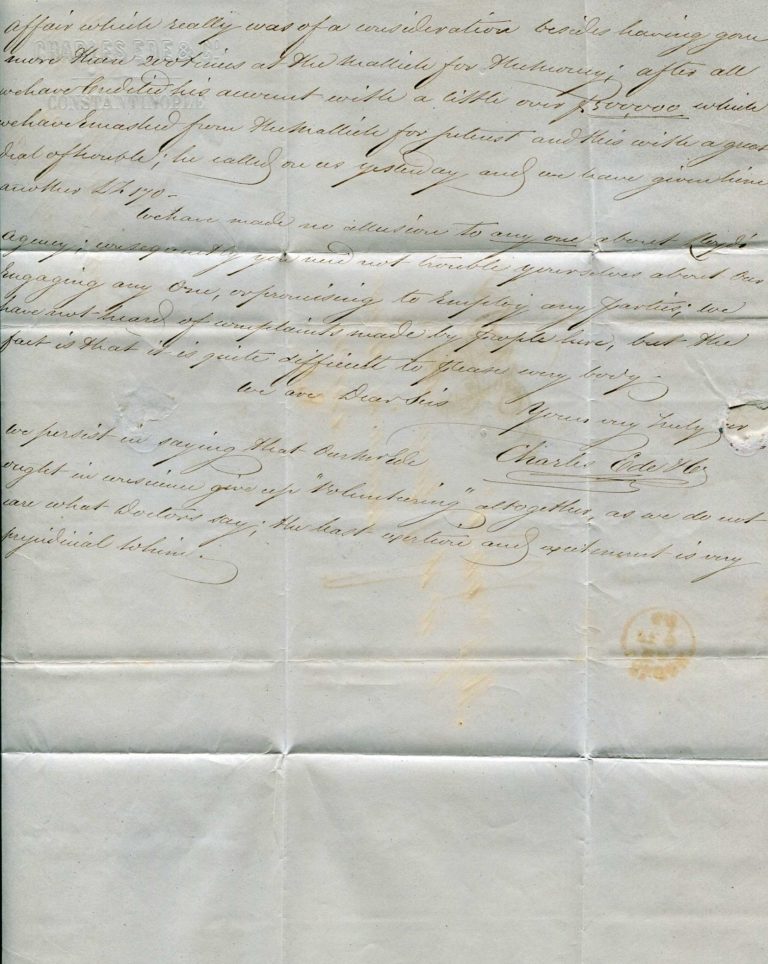 affair which really was of a consideration besides having gone
CHARLES EDE & Co
more than 200 times at the Mallieh for the money; after all
we have Credited his account with a little over P300,000 which
CONSTANTINOPLE
we have Encashed from the Mallieh for Interest and this with a great
deal of trouble; he called on us yesterday and we have given him
another Lt 170 -
We have made no allusion to any one about Lloyd's
Agency; consequently you need not trouble yourselves about our
Engaging any One, or promising to Employ any parties; we
have not heard of complaints made by people here, but the
fact is that it is quite difficult to please every body -
We are Dear Sirs
Yours very truly
Charles Ede & Co
We persist in saying that Our Mr Ede
ought in conscience give up "Volunteering" altogether, as we do not
care what Doctors say; the least exertion and excitement is very
prejudicial to him.